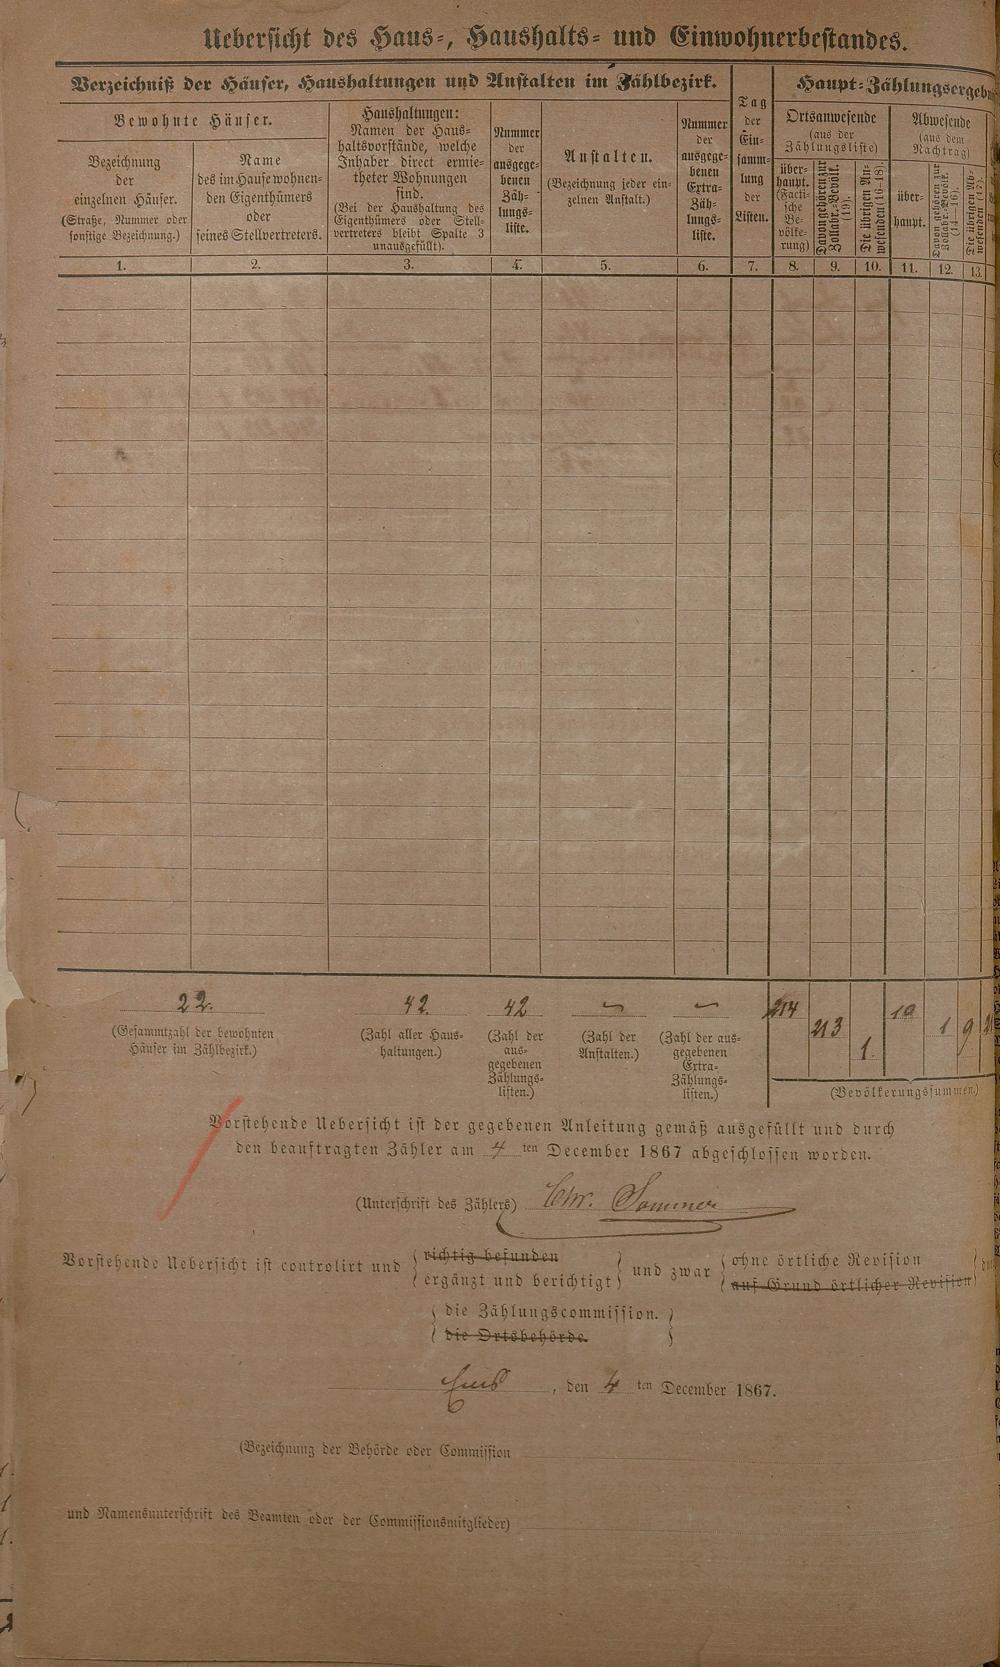 Uebersicht des Haus-, Haushalts- und Einwohnerbestandes.
Verzeichniß der Häuser, Haushaltungen und Anstalten im Zählbezirk.
Bewohnte Häuser.
Bezeichnung
der
einzelnen Häuser.
(Straße, Nummer oder
sonstige Bezeichnung.)
Name
des im Hause wohnen-
den Eigenthümers
oder
seines Stellvertreters.
Haushaltungen:
Namen der Haus-
haltsvorstände, welche
Inhaber direct ermie-
theter Wohnungen
sind.
(Bei der Haushaltung des
Eigenthümers oder Stell-
vertreters bleibt Spalte 3
unausgefüllt).
Nummer
der
ausgege-
benen
Zäh-
lungs-
liste.
Anstalten.
(Bezeichnung jeder ein-
zelnen Anstalt.)
Nummer
der
ausgege-
benen
Extra-
Zäh-
lungs-
liste.
Tag
der
Ein-
samm-
lung
der
Listen.
Haupt-Zählungsergeb
Ortsanwesende
(aus der
Zählungsliste)
über-
haupt.
(Facti-
sche
Be-
völke-
rung)
Davon gehören zur
Zollabr.-Bevölk.
(19).
Die übrigen An-
wesenden (16–18).
Abwesende
(aus dem
Nachtrag)
über-
haupt.
Davon gehören zur
Zollabr.-Bevölk.
(14–16).
Die übrigen Ab-
wesenden (17).
1. 2. 3. 4. 5. 6. 7. 8. 9. 10. 11. 12. 13.
22. 42. 42 – – 214 213 1. 10 1 9
(Gesammtzahl der bewohnten
Häuser im Zählbezirk.)
(Zahl aller Haus-
haltungen.)
(Zahl der
aus-
gegebenen
Zählungs-
listen.)
(Zahl der
Anstalten.)
(Zahl der aus-
gegebenen
Extra-
Zählungs-
listen.)
(Bevölkerungssummen.)
Vorstehende Uebersicht ist der gegebenen Anleitung gemäß ausgefüllt und durch
den beauftragten Zähler am 4 ten December 1867 abgeschlossen worden.
(Unterschrift des Zählers) Chr. Sommer
Vorstehende Uebersicht ist controlirt und
richtig befunden
ergänzt und berichtigt
und zwar
ohne örtliche Revision
auf Grund örtlicher Revision
die Zählungscommission.
die Ortsbehörde.
Ems, den 4 ten December 1867.
(Bezeichnung der Behörde oder Commission
und Namensunterschrift des Beamten oder der Commissionsmitglieder)